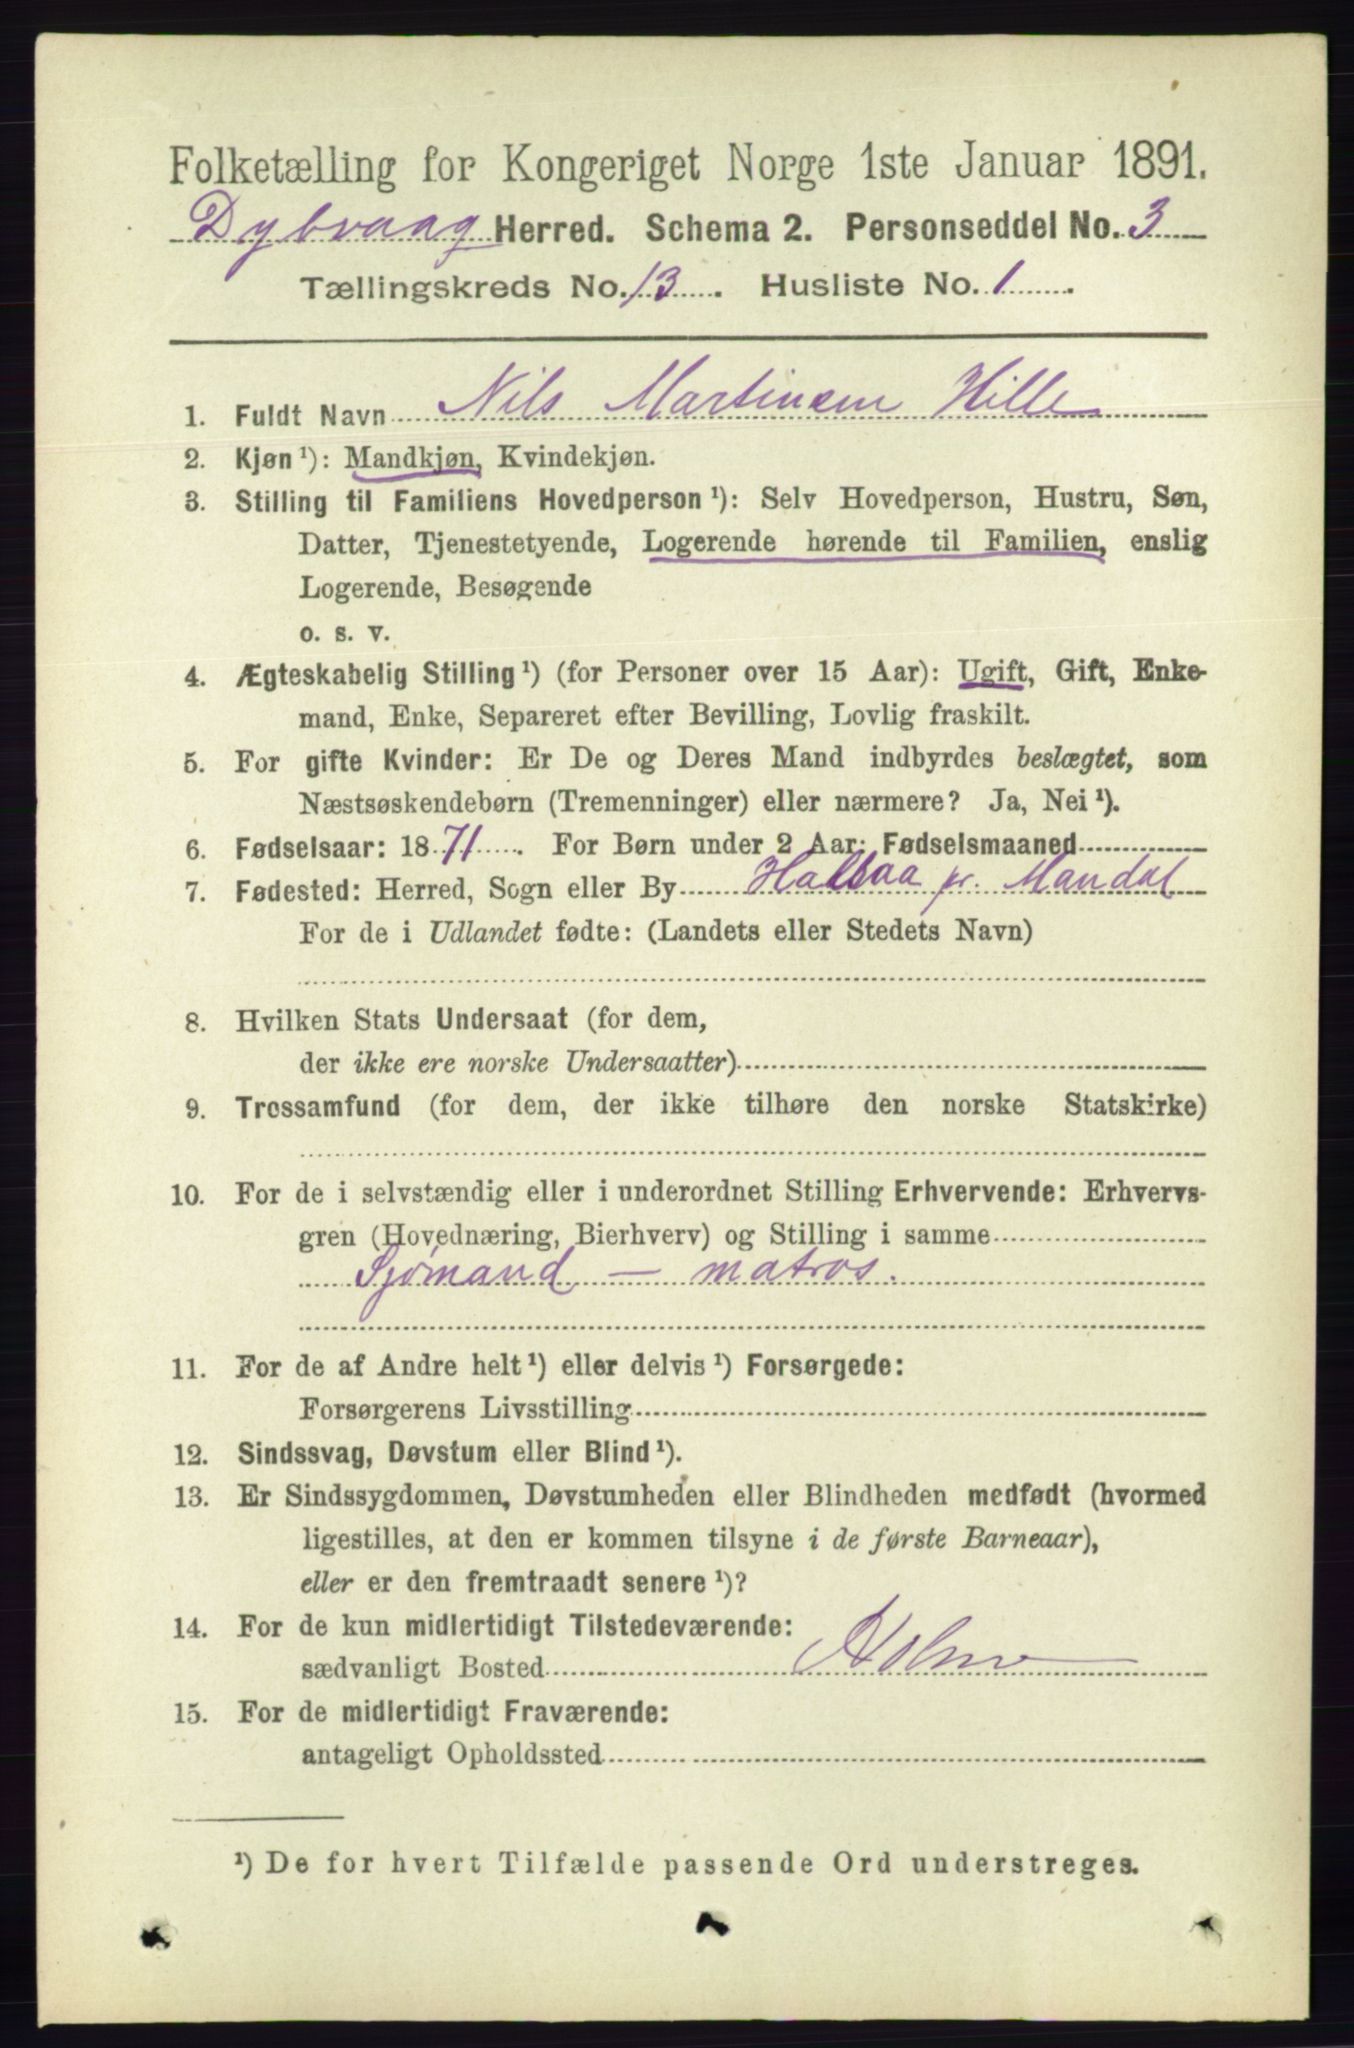 Folketælling for Kongeriget Norge 1ste Januar 1891.
Dybvaag Herred. Schema 2. Personseddel No. 3
Tællingskreds No. 13. Husliste No. 1.
1. Fuldt Navn Nils Martinsen Hille
2. Kjøn ¹): Mandkjøn, Kvindekjøn.
3. Stilling til Familiens Hovedperson ¹): Selv Hovedperson, Hustru, Søn,
Datter, Tjenestetyende, Logerende hørende til Familien, enslig
Logerende, Besøgende
o. s. v.
4. Ægteskabelig Stilling ¹) (for Personer over 15 Aar): Ugift, Gift, Enke-
mand, Enke, Separeret efter Bevilling, Lovlig fraskilt.
5. For gifte Kvinder: Er De og Deres Mand indbyrdes beslægtet, som
Næstsøskendebørn (Tremenninger) eller nærmere? Ja, Nei ¹).
6. Fødselsaar: 1871. For Børn under 2 Aar: Fødselsmaaned
7. Fødested: Herred, Sogn eller By Halsaa pr. Mandal
For de i Udlandet fødte: (Landets eller Stedets Navn)
8. Hvilken Stats Undersaat (for dem,
der ikke ere norske Undersaatter)
9. Trossamfund (for dem, der ikke tilhøre den norske Statskirke)
10. For de i selvstændig eller i underordnet Stilling Erhvervende: Erhvervs-
gren (Hovednæring, Bierhverv) og Stilling i samme
Sjømand – matros.
11. For de af Andre helt ¹) eller delvis ¹) Forsørgede:
Forsørgerens Livsstilling
12. Sindssvag, Døvstum eller Blind ¹).
13. Er Sindssygdommen, Døvstumheden eller Blindheden medfødt (hvormed
ligestilles, at den er kommen tilsyne i de første Barneaar),
eller er den fremtraadt senere ¹)?
14. For de kun midlertidigt Tilstedeværende:
sædvanligt Bosted Holme
15. For de midlertidigt Fraværende:
antageligt Opholdssted
¹) De for hvert Tilfælde passende Ord understreges.